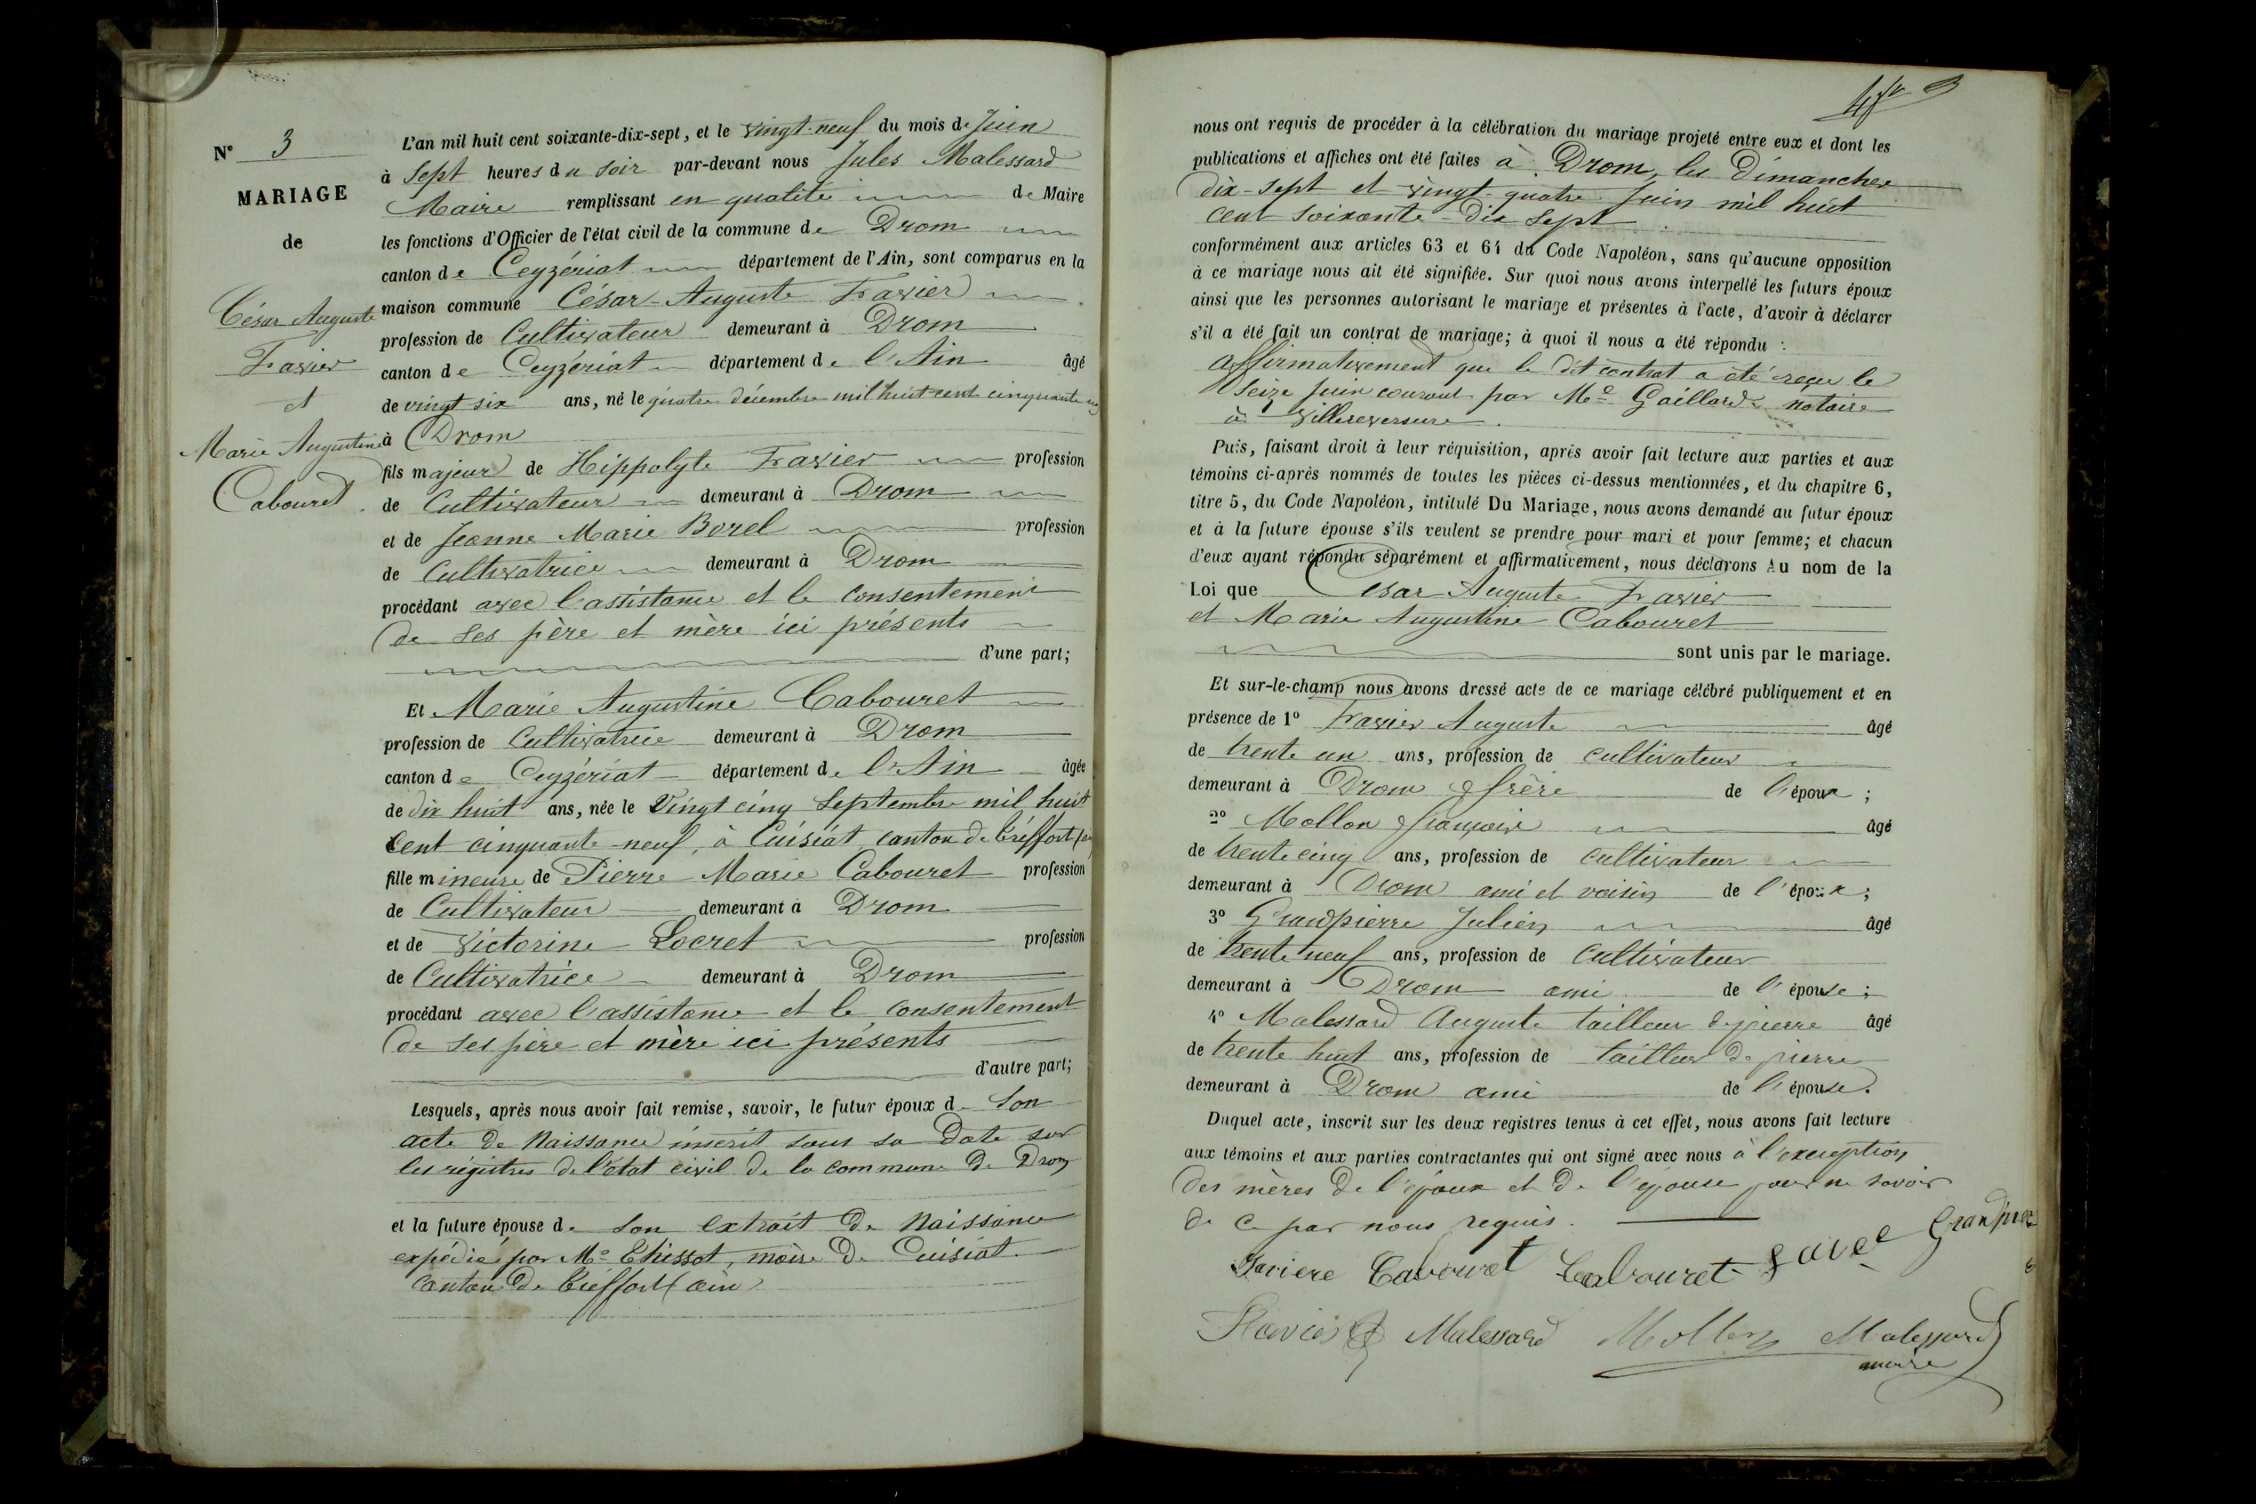 N° 3
MARIAGE
de
César Auguste
Favier
et
Marie Augustine
Cabouret
L'an mil huit cent soixante-dix-sept, et le vingt-neuf du mois de Juin
à Sept heures du soir par-devant nous Jules Malessard
Maire remplissant en qualité de Maire
les fonctions d'Officier de l'état civil de la commune de Drom
canton de Ceyzériat département de l'Ain, sont comparus en la
maison commune César-Auguste Favier
profession de Cultivateur demeurant à Drom
canton de Ceyzériat département de l'Ain âgé
de vingt six ans, né le quatre décembre mil huit cent cinquante
à Drom
fils majeur de Hippolyte Favier profession
de Cultivateur demeurant à Drom
et de Jeanne Marie Borel profession
de Cultivatrice demeurant à Drom
procédant avec l'assistance et le consentement
de ses père et mère ici présents
d'une part;
Et Marie Augustine Cabouret
profession de Cultivatrice demeurant à Drom
canton de Ceyzériat département de l'Ain âgée
de dix huit ans, née le Vingt cinq Septembre mil huit
cent cinquante-neuf, à Cuisiat canton de Treffort
fille mineure de Pierre Marie Cabouret profession
de Cultivateur demeurant à Drom
et de Victorine Locret profession
de Cultivatrice demeurant à Drom
procédant avec l'assistance et le consentement
de ses père et mère ici présents
d'autre part;
Lesquels, après nous avoir fait remise, savoir, le futur époux de Son
acte de Naissance inscrit sous sa Date sur
les régistres de l'état civil de la commune de Drom
et la future épouse de son extrait de Naissance
expédié par Me Chissot, maire de Cuisiat
canton de Treffort (ain
nous ont requis de procéder à la célébration du mariage projeté entre eux et dont les
publications et affiches ont été faites à Drom, les Dimanches
dix-sept et vingt-quatre Juin mil huit
cent soixante-Dix Sept
conformément aux articles 63 et 64 du Code Napoléon, sans qu'aucune opposition
à ce mariage nous ait été signifiée. Sur quoi nous avons interpellé les futurs époux
ainsi que les personnes autorisant le mariage et présentes à l'acte, d'avoir à déclarer
s'il a été fait un contrat de mariage; à quoi il nous a été répondu :
affirmativement que le dit contrat a été reçu le
Seize Juin courant par Me Gaillard notaire
à Villereversure.
Puis, faisant droit à leur réquisition, après avoir fait lecture aux parties et aux
témoins ci-après nommés de toutes les pièces ci-dessus mentionnées, et du chapitre 6,
titre 5, du Code Napoléon, intitulé Du Mariage, nous avons demandé au futur époux
et à la future épouse s'ils veulent se prendre pour mari et pour femme; et chacun
d'eux ayant répondu séparément et affirmativement, nous déclarons Au nom de la
Loi que César Auguste Favier
et Marie Augustine Cabouret
sont unis par le mariage.
Et sur-le-champ nous avons dressé acte de ce mariage célébré publiquement et en
présence de 1° Favier Auguste âgé
de trente un ans, profession de cultivateur
demeurant à Drom frère de l'époux;
2° Mollon françois âgé
de trente cinq ans, profession de cultivateur
demeurant à Drom ami et voisin de l'époux;
3° Grandpierre Julien âgé
de trente neuf ans, profession de Cultivateur
demeurant à Drom ami de l'épouse;
4° Malessard Auguste tailleur de pierre âgé
de trente huit ans, profession de tailleur de pierre
demeurant à Drom ami de l'épouse.
Duquel acte, inscrit sur les deux registres tenus à cet effet, nous avons fait lecture
aux témoins et aux parties contractantes qui ont signé avec nous à l'exception
des mères de l'époux et de l'épouse pour ne savoir
de ce par nous requis.
Cabouret Cabouret
Favier Malessard Mollon Malessard
maire